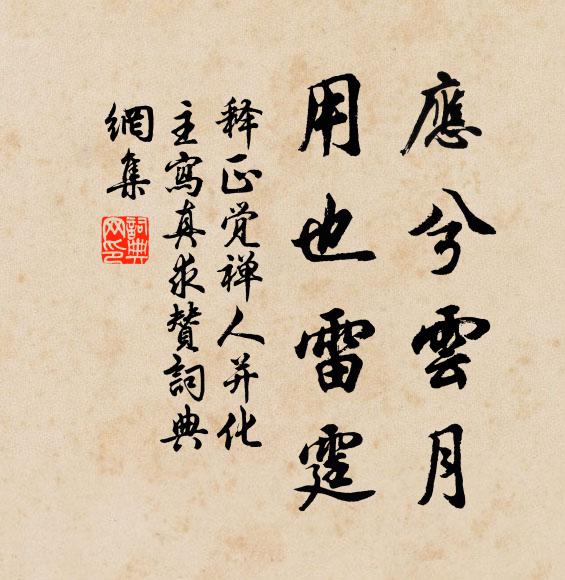 應兮雲月
用也雷霆
释正觉禅人并化
主寫真求赞詞典
網集
詞典网印